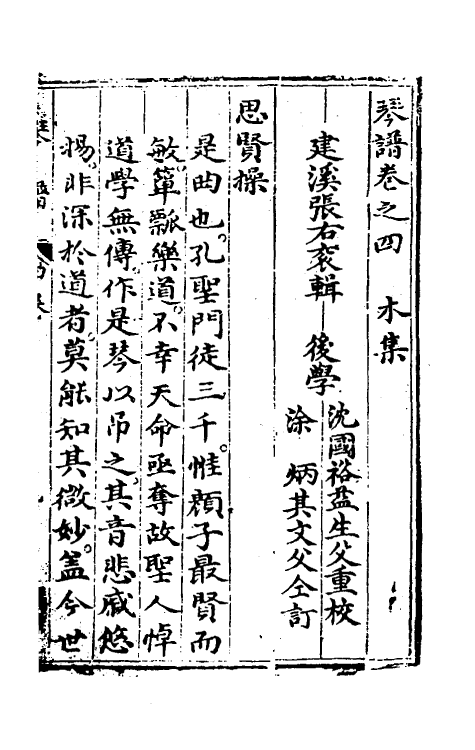 琴譜卷之四 木集
建溪張右袞輯 後學
沈國裕益生父重校
涂 炳其文父仝訂
思賢操
是曲也。孔聖門徒三千。惟顏子最賢而
敏。簞瓢樂道。不幸天命亟奪故聖人悼
道學無傳。作是琴以吊之。其音悲慼悠
惕。非深於道者。莫能知其微妙。盖今世